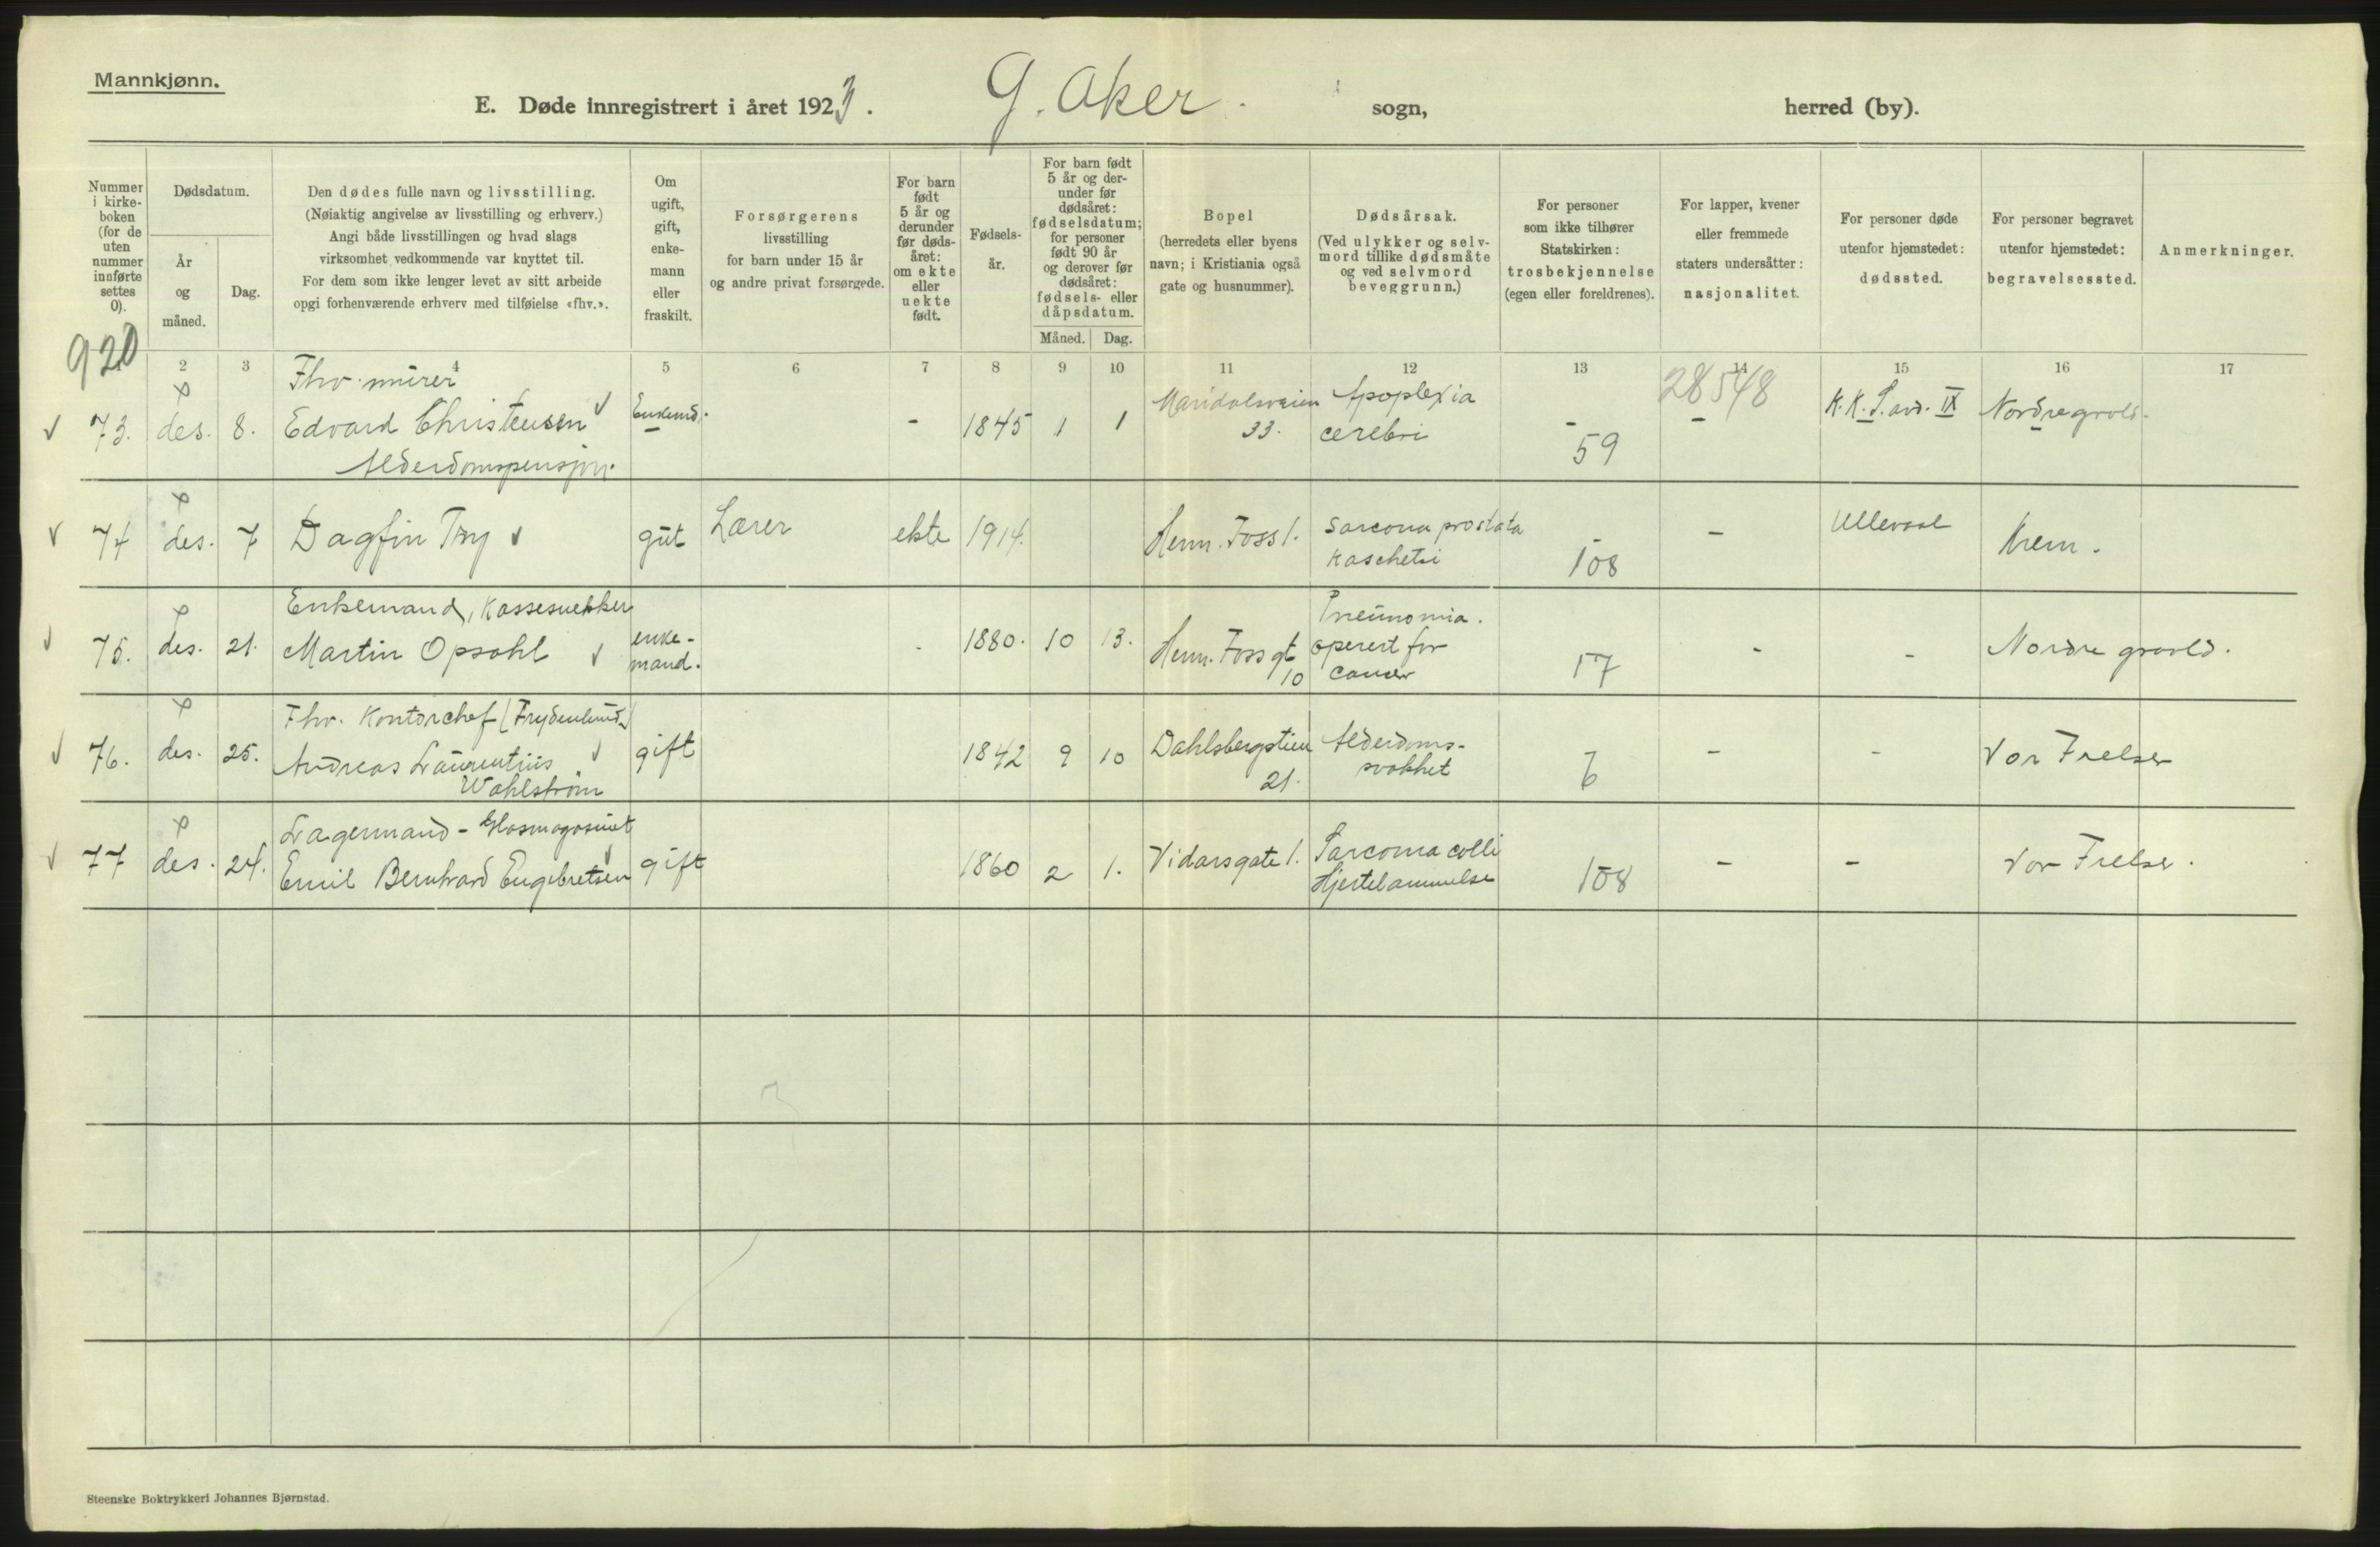 Mannkjønn.
E. Døde innregistrert i året 1923. G. Aker. sogn, herred (by).
Nummer i kirke-boken (for de uten nummer innførte settes 0).
Dødsdatum.
År og måned.
Dag.
Den dødes fulle navn og livsstilling.
(Nøiaktig angivelse av livsstilling og erhverv.)
Angi både livsstillingen og hvad slags
virksomhet vedkommende var knyttet til.
For dem som ikke lenger levet av sitt arbeide
opgi forhenværende erhverv med tilføielse «fhv.».
Om ugift, gift, enke-mann eller fraskilt.
Forsørgerens
livsstilling
for barn under 15 år
og andre privat forsørgede.
For barn født 5 år og derunder før døds-året: om ekte eller uekte født.
Fødsels-år.
For barn født 5 år og der-under før dødsåret: fødselsdatum; for personer født 90 år og derover før dødsåret: fødsels- eller dåpsdatum.
Måned. Dag.
Bopel
(herredets eller byens
navn; i Kristiania også
gate og husnummer).
Dødsårsak.
(Ved ulykker og selv-
mord tillike dødsmåte
og ved selvmord
beveggrunn.)
For personer
som ikke tilhører
Statskirken:
trosbekjennelse
(egen eller foreldrenes).
For lapper, kvener
eller fremmede
staters undersåtter:
nasjonalitet.
For personer døde
utenfor hjemstedet:
dødssted.
For personer begravet
utenfor hjemstedet:
begravelsessted.
Anmerkninger.
920
2 3 4 5 6 7 8 9 10 11 12 13 14 15 16 17
Fhv. murer
73. des. 8. Edvard Christensen Enkemd. - 1845 1 1 Maridalsveien 33. Apoplexia cerebri - 59 28548 - K.K.S. avd. IX Nordre gravld.
Alderdomspensjon.
74 des. 7 Dagfin Try gut Lærer ekte 1914. Henn. Foss 1. Sarcoma prostata Kascheksi - 108 - Ullevaal Krem.
Enkemand, Kassesnekker
75. des. 21. Martin Opsahl enke-mand. - 1880. 10 13. Henn. Foss gt 10 Pneumonia. operert for cancer 17 - - Nordre gravld.
Fhv. Kontorchef (Frydenlund)
76. des. 25. Andreas Laurentius Wahlstrøm gift 1842 9 10 Dahlsbergstien 21. Alderdoms-svakhet 6 - - Vor Frelser
Lagermand - Glasmagasinet
77 des. 24. Emil Bernhard Engebretsen gift 1860 2 1. Vidarsgate 1. Sarcoma colli Hjertelammelse 108 - - Vor Frelser.
Steenske Boktrykkeri Johannes Bjørnstad.